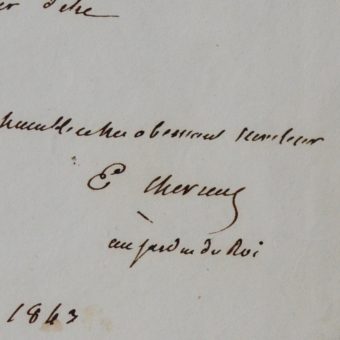 d'être
humble et très obéissant serviteur
E. Chevreul
au jardin du Roi
1843